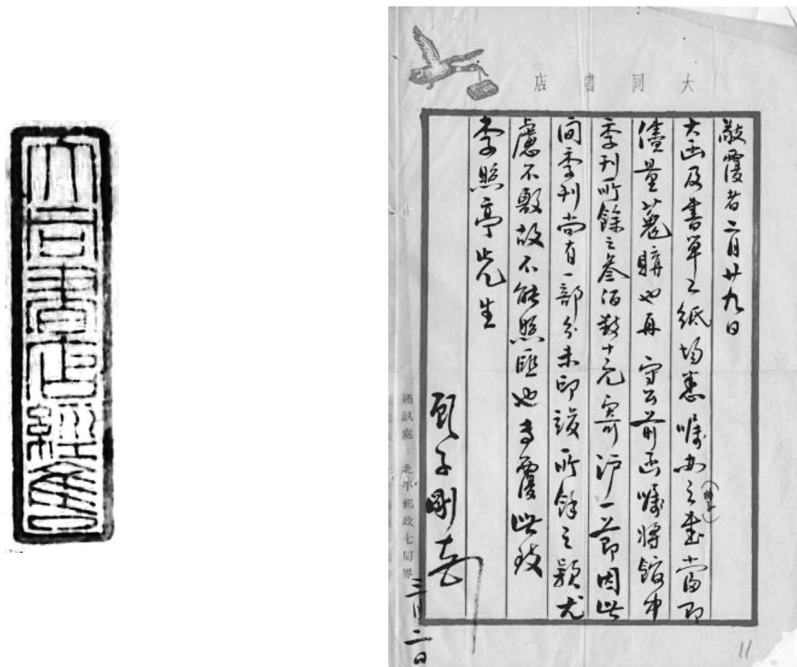 大同書店經售
大同書店
敬覆者二月廿九日
大函及書單乙紙均悉囑女之書當即
儘量蒐購也再守公前函囑將館中
季刊所餘之叁佰數十元寄沪一節因此
间季刊尚有一部分未印竣所餘之款尤
慮不敷故不能照匯也专覆此致
李照亭先生
顧子剛
三月二日
通訊處：北平郵政七局界
11